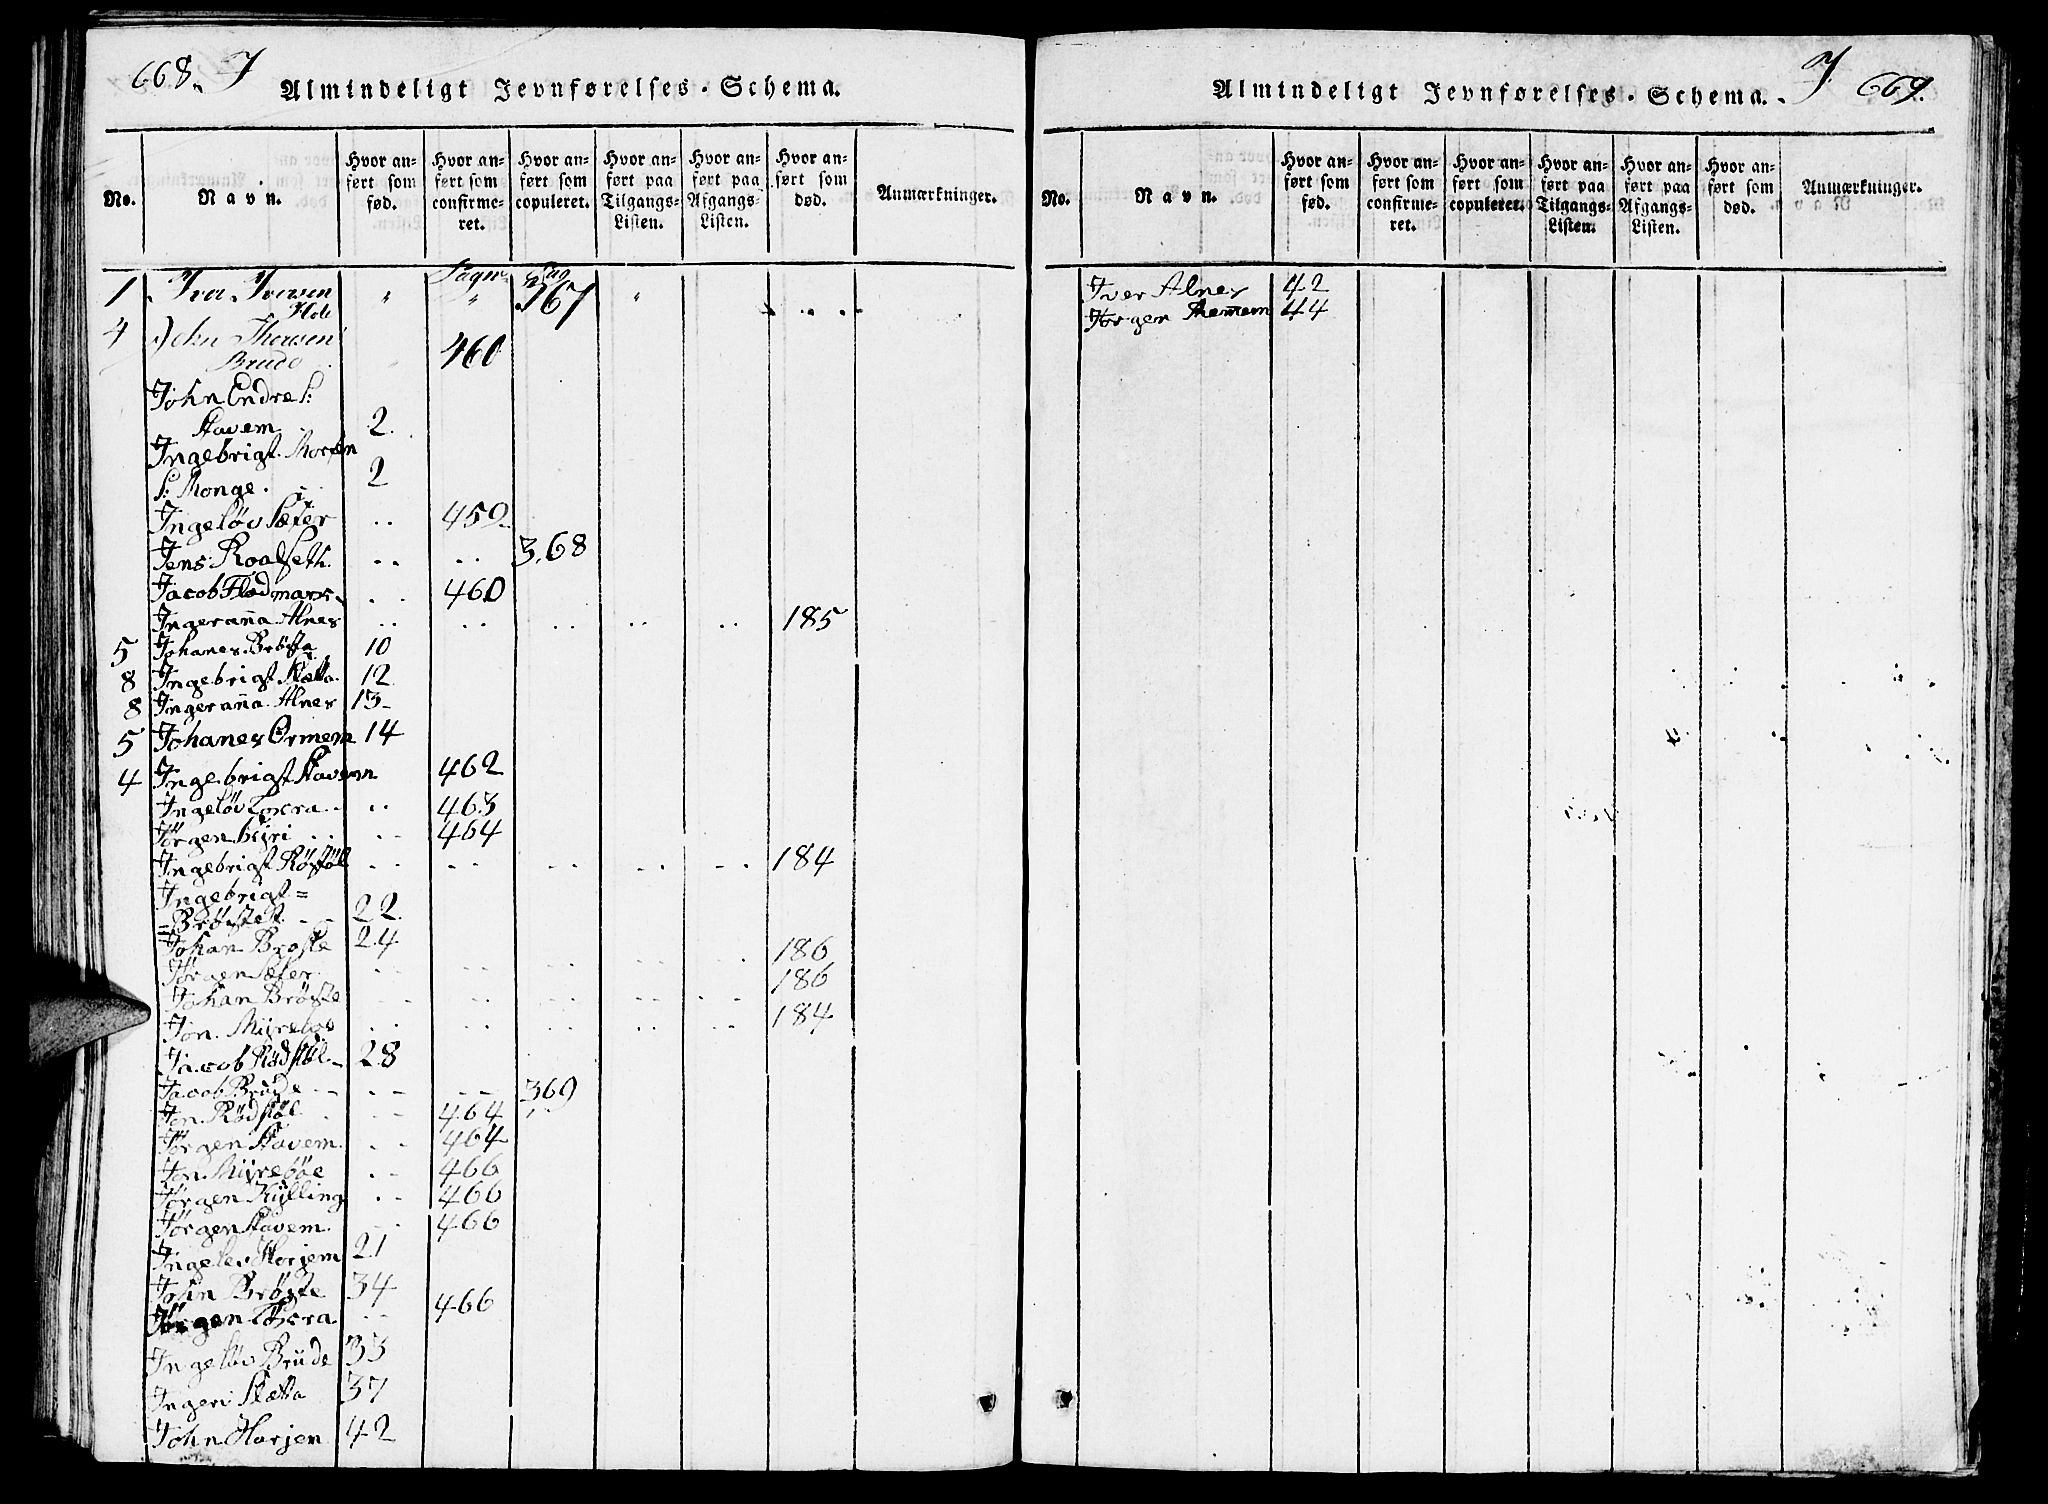 668. J
Almindeligt Jevnførelses-Schema.
No. Navn. Hvor anført som fød. Hvor anført som confirmeret. Hvor anført som copuleret. Hvor anført paa Tilgangs-Listen. Hvor anført paa Afgangs-Listen. Hvor anført som død. Anmærkninger.
Pagin Pag
1 Iver Iversen " " 367 "
4 John Thoresen
460
John Endre S:
Stavem 2.
Ingebrigt Morten
S: Monge. 2
Ingeløv Sæter .. 459
Jens Roalseth. .. .. 368
Jacob Fladmark .. 460
Ingeraña Alnes .. .. .. .. .. 185
5 Johanes Brøste 10
8 Ingebrigt Slætta. 12
8 Ingeraña Alnes 13
5 Johanes Ormem 14
4 Ingebrigt Stavem 462
Ingeløv .. 463
Jørgen .. 464
Ingebrigt Rødstøl .. .. .. .. .. 184
Ingebrigt =
= Brøstet 22.
Johan Brøste 24
Jørgen Sæter .. .. .. .. .. 186
Johan Brøste .. .. .. .. .. 186
Jon. Myrebøe .. .. .. .. .. 184
Jacob Rødstøl 28
Jacob Brude .. .. 369
Jon Rødstøl .. 464
Jørgen Stavem .. 464
Jon Myrebøe .. 466
Jørgen Kylling .. 466
Jørgen Stavem .. 466
Ingelev Horjem 21
John Brøste 34
Jørgen .. 466
Ingeløv Brude 33
Ingeri Slætta 37
John Horjen 42
Almindeligt Jevnførelses-Schema. J 669.
No. Navn. Hvor anført som fød. Hvor anført som confirmeret. Hvor anført som copuleret. Hvor anført paa Tilgangs-Listen. Hvor anført paa Afgangs-Listen. Hvor anført som død. Anmærkninger.
Iver Alnes 42
Jørgen 44